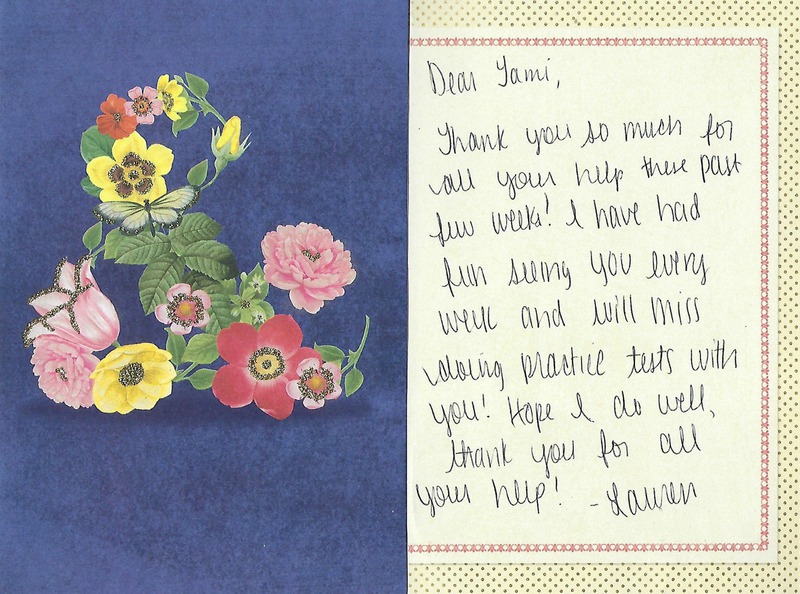 Dear Tami,
Thank you so much for
all your help these past
few weeks! I have had
fun seeing you every
week and will miss
doing practice tests with
you! Hope I do well,
thank you for all
your help! -Lauren